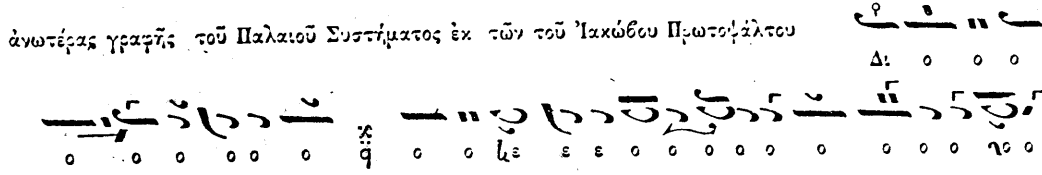 ἀνωτέρας γραφῆς τοῦ Παλαιοῦ Συστήματος ἐκ τῶν τοῦ Ἰακώβου Πρωτοψάλτου
Δι ο ο ο
ο ο ο ο ο ο ο ο ε ε ε ο ο ο ο ο ο ο ο ο ο ο